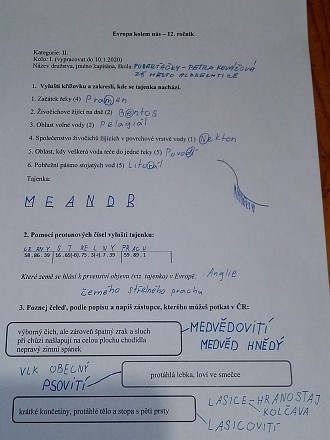 Evropa kolem nás – 12. ročník
Kategorie: II.
Kolo: I. (vypracovat do 10.1.2020)
Název družstva, jméno kapitána, škola: PUBERŤAČKY - PETRA KOVÁČOVÁ
ZŠ MĚSTO ALBRECHTICE
1. Vylušti křížovku a zakresli, kde se tajenka nachází.
1. Začátek řeky (4) Pramen
2. Živočichové žijící na dně (2) Bentos
3. Oblast volné vody (2) Pelagiál
4. Společenstvo živočichů žijících v povrchové vrstvě vody (1) Nekton
5. Oblast, kdy veškerá voda teče do jedné řeky (5) Povodí
6. Pobřežní pásmo stojatých vod (5) Litorál
Tajenka:
M E A N D R
2. Pomocí protonových čísel vylušti tajenku:
ČERNÝ STŘELNÝ PRACH
Které země se hlásí k prvenství objevu (viz. tajenka) v Evropě: Anglie
černého střelného prachu
3. Poznej čeleď, podle popisu a napiš zástupce, kterého můžeš potkat v ČR:
výborný čich, ale zároveň špatný zrak a sluch
při chůzi našlapují na celou plochu chodidla
nepravý zimní spánek
MEDVĚDOVITÍ
MEDVĚD HNĚDÝ
VLK OBECNÝ
PSOVITÍ
protáhlá lebka, loví ve smečce
krátké končetiny, protáhlé tělo a stopa s pěti prsty
LASICE - HRANOSTAJ
KOLČAVA
LASICOVITÍ